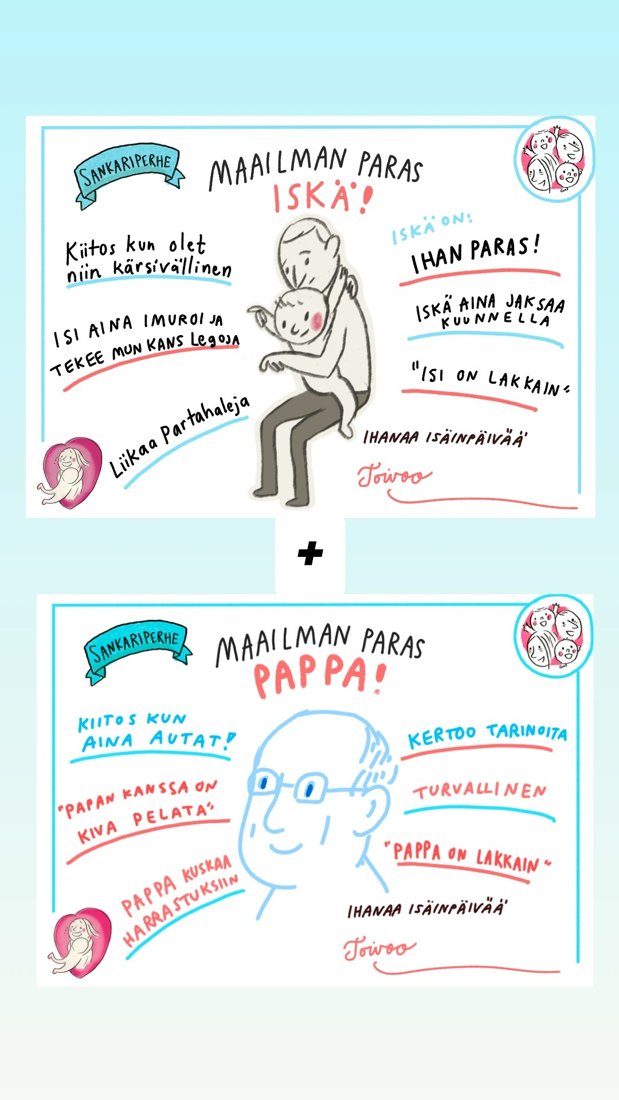 SANKARIPERHE
MAAILMAN PARAS
ISKÄ!
Kiitos kun olet
niin kärsivällinen
ISI AINA IMUROI JA
TEKEE MUN KANS LEGOJA
Liikaa Partahaleja
ISKÄ ON:
IHAN PARAS!
ISKÄ AINA JAKSAA
KUUNNELLA
"ISI ON LAKKAIN"
IHANAA ISÄINPÄIVÄÄ
Toivoo
+
SANKARIPERHE
MAAILMAN PARAS
PAPPA!
KIITOS KUN
AINA AUTAT!
"PAPAN KANSSA ON
KIVA PELATA"
PAPPA KUSKAA
HARRASTUKSIIN
KERTOO TARINOITA
TURVALLINEN
"PAPPA ON LAKKAIN"
IHANAA ISÄINPÄIVÄÄ
Toivoo